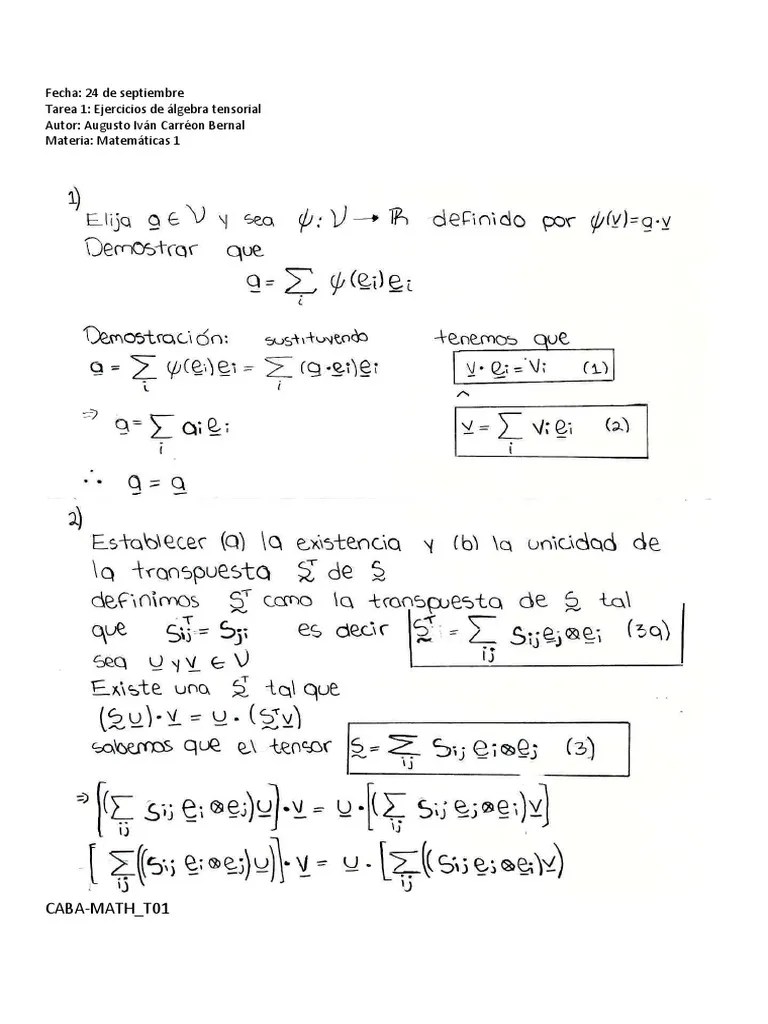 Fecha: 24 de septiembre
Tarea 1: Ejercicios de álgebra tensorial
Autor: Augusto Iván Carréon Bernal
Materia: Matemáticas 1
1)
Elija a̲ ∈ V y sea ψ: V → ℝ definido por ψ(v̲)=a̲·v̲
Demostrar que
a̲ = Σ_i ψ(e̲i)e̲i
Demostración: sustituyendo tenemos que
a̲ = Σ_i ψ(e̲i)e̲i = Σ_i (a̲·e̲i)e̲i v̲·e̲i = Vi (1)
^
⇒ a̲ = Σ_i ai e̲i v̲ = Σ_i Vi e̲i (2)
∴ a̲ = a̲
2)
Establecer (a) la existencia y (b) la unicidad de
la transpuesta S̰ᵀ de S̰
definimos S̰ᵀ como la transpuesta de S̰ tal
que Sijᵀ = Sji es decir S̰ᵀ = Σ_ij Sij e̲j⊗e̲i (3a)
sea u̲ y v̲ ∈ V
Existe una S̰ᵀ tal que
(S̰u̲)·v̲ = u̲·(S̰ᵀv̲)
sabemos que el tensor S̰ = Σ_ij Sij e̲i⊗e̲j (3)
⇒ [(Σ_ij Sij e̲i⊗e̲j)u̲]·v̲ = u̲·[(Σ_ij Sij e̲j⊗e̲i)v̲]
[Σ_ij((Sij e̲i⊗e̲j)u̲)]·v̲ = u̲·[Σ_ij((Sij e̲j⊗e̲i)v̲)
CABA-MATH_T01